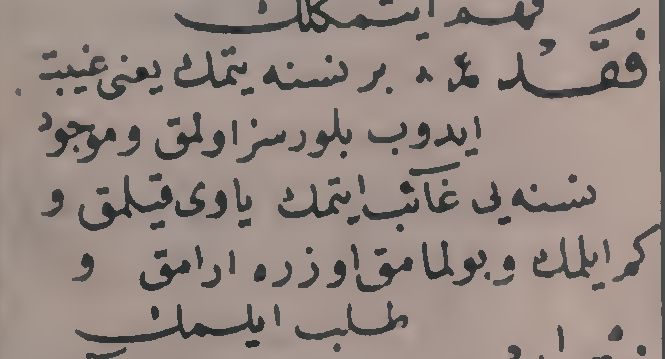 فهم ايتمكلك
فَقْد ع ٨ بر نسنه يتمك يعنى غيبت
ايدوب بلورسز اولمق و موجود
نسنه يى غائب ايتمك ياوى قيلمق و
كم ايلمك و بولمامق اوزره ارامق و
طلب ايلمك